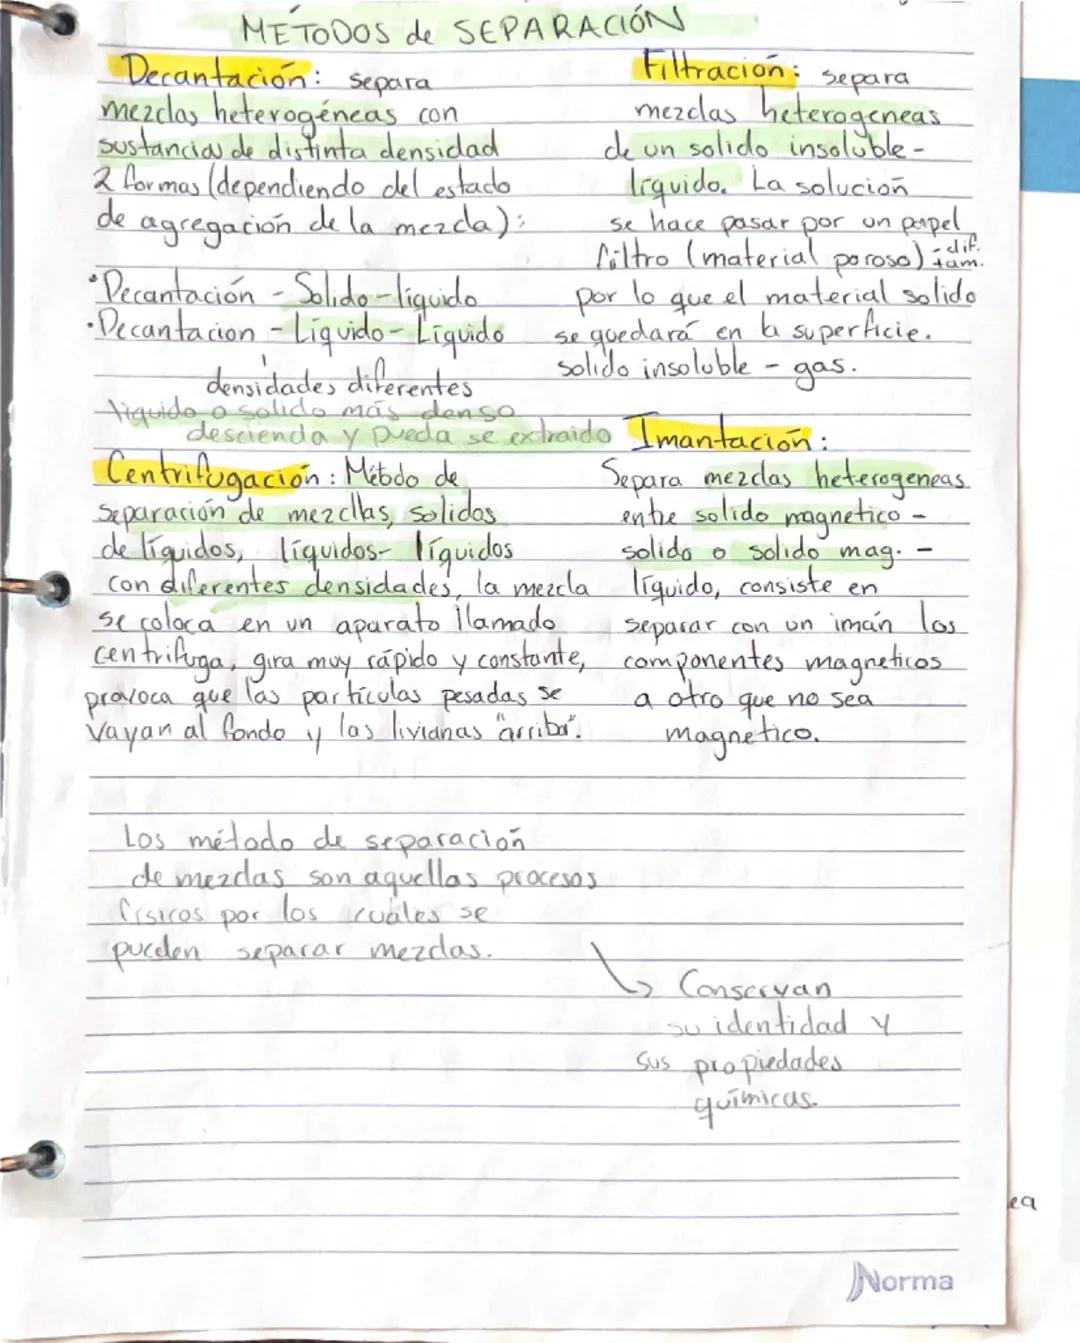 MÉTODOS de SEPARACIÓN
Decantación: separa
mezclas heterogéneas con
sustancias de distinta densidad
2 formas (dependiendo del estado
de agregación de la mezcla):
•Decantación - Solido-líquido
•Decantacion - Líquido-Líquido
densidades diferentes
líquido o solido más denso
descienda y pueda se extraido
Filtración: separa
mezclas heterogeneas
de un solido insoluble-
líquido. La solución
se hace pasar por un papel
filtro (material poroso) - dif. tam.
por lo que el material solido
se quedará en la superficie.
solido insoluble - gas.
Centrifugación: Método de
separación de mezclas, solidos
de líquidos, líquidos- líquidos
con diferentes densidades, la mezcla
se coloca en un aparato llamado
centrifuga, gira muy rápido y constante,
provoca que las partículas pesadas se
vayan al fondo y las livianas "arriba".
Imantación:
Separa mezclas heterogeneas
entre solido magnetico -
solido o solido mag. -
líquido, consiste en
separar con un imán los
componentes magneticos
a otro que no sea
magnetico.
Los método de separación
de mezclas son aquellas procesos
físicos por los cuáles se
pueden separar mezclas.
Conservan
su identidad y
sus propiedades
químicas.
ea
Norma